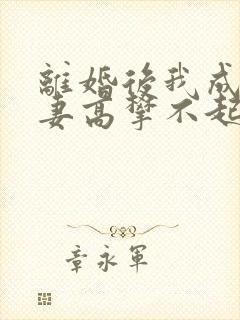 離婚後我成
妻高攀不起
章永軍